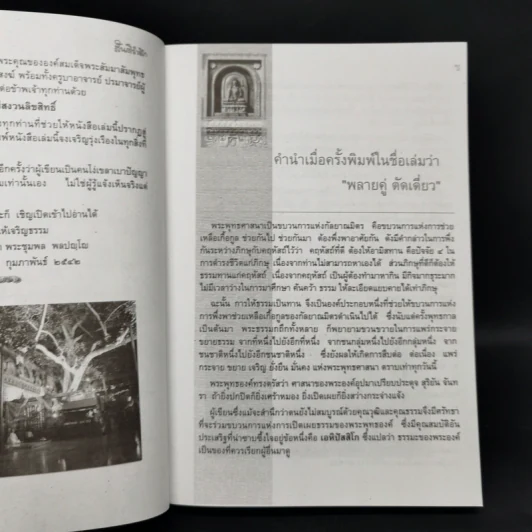 พระคุณขององค์สมเด็จพระสัมมาสัมพุทธ
สงฆ์ พร้อมทั้งครูบาอาจารย์ ปรมาจารย์ผู้
ต่อข้าพเจ้าทุกท่านด้วย
สงวนลิขสิทธิ์
ทุกท่านที่ช่วยให้หนังสือเล่มนี้ปรากฏสู่
พิมพ์หนังสือเล่มนี้จงเจริญรุ่งเรืองในทุกสิ่งที่
อีกครั้งว่าผู้เขียนเป็นคนโง่เขลาเบาปัญญา
มเท่านั้นเอง ไม่ใช่ผู้รู้แจ้งเห็นจริงแต่
ะก็ เชิญเปิดเข้าไปอ่านได้
ให้เจริญธรรม
พระชุมพล พลปญฺโญ
กุมภาพันธ์ ๒๕๔๒
คำนำเมื่อครั้งพิมพ์ในชื่อเล่มว่า
"พลายคู่ ดัดเดี่ยว"
พระพุทธศาสนาเป็นขบวนการแห่งกัลยาณมิตร คือขบวนการแห่งการช่วย
เหลือเกื้อกูล ช่วยกันไป ช่วยกันมา ต้องพึ่งพาอาศัยกัน ดังมีคำกล่าวในการพึ่ง
กันระหว่างภิกษุกับคฤหัสถ์ไว้ว่า คฤหัสถ์ที่ดี ต้องให้อามิสทาน คือปัจจัย ๔ ใน
การดำรงชีวิตแก่ภิกษุ เนื่องจากท่านไม่สามารถหาเองได้ ส่วนภิกษุที่ดีก็ต้องให้
ธรรมทานแก่คฤหัสถ์ เนื่องจากคฤหัสถ์ เป็นผู้ต้องทำมาหากิน มีกิจมากธุระมาก
ไม่มีเวลาว่างในการมาศึกษา ค้นคว้า ธรรม ให้ละเอียดแยบคายได้เท่าภิกษุ
ฉะนั้น การให้ธรรมเป็นทาน จึงเป็นองค์ประกอบหนึ่งที่ช่วยให้ขบวนการแห่ง
การพึ่งพาช่วยเหลือเกื้อกูลของกัลยาณมิตรดำเนินไปได้ ซึ่งนับแต่ครั้งพุทธกาล
เป็นต้นมา พระธรรมกถึกทั้งหลาย ก็พยายามขวนขวายในการแพร่กระจาย
ขยายธรรม จากที่หนึ่งไปยังอีกที่หนึ่ง จากชนกลุ่มหนึ่งไปยังอีกกลุ่มหนึ่ง จาก
ชนชาติหนึ่งไปยังอีกชนชาติหนึ่ง ซึ่งยังผลให้เกิดการสืบต่อ ต่อเนื่อง แพร่
กระจาย ขยาย เจริญ ยั่งยืน มั่นคง แห่งพระพุทธศาสนา ตราบเท่าทุกวันนี้
พระพุทธองค์ทรงตรัสว่า ศาสนาของพระองค์อุปมาเปรียบประดุจ สุริยัน จันท
รา ถ้ายิ่งปกปิดก็ยิ่งเศร้าหมอง ยิ่งเปิดเผยก็ยิ่งสว่างกระจ่างแจ้ง
ผู้เขียนซึ่งแม้จะสำนึกว่าตนยังไม่สมบูรณ์ด้วยคุณวุฒิและคุณธรรมจึงมีศรัทธา
ที่จะร่วมขบวนการแห่งการเปิดเผยธรรมของพระพุทธองค์ ซึ่งมีคุณสมบัติอัน
ประเสริฐที่น่าซาบซึ้งใจอยู่ข้อหนึ่งคือ เอหิปัสสิโก ซึ่งแปลว่า ธรรมะของพระองค์
เป็นของที่ควรเรียกผู้อื่นมาดู